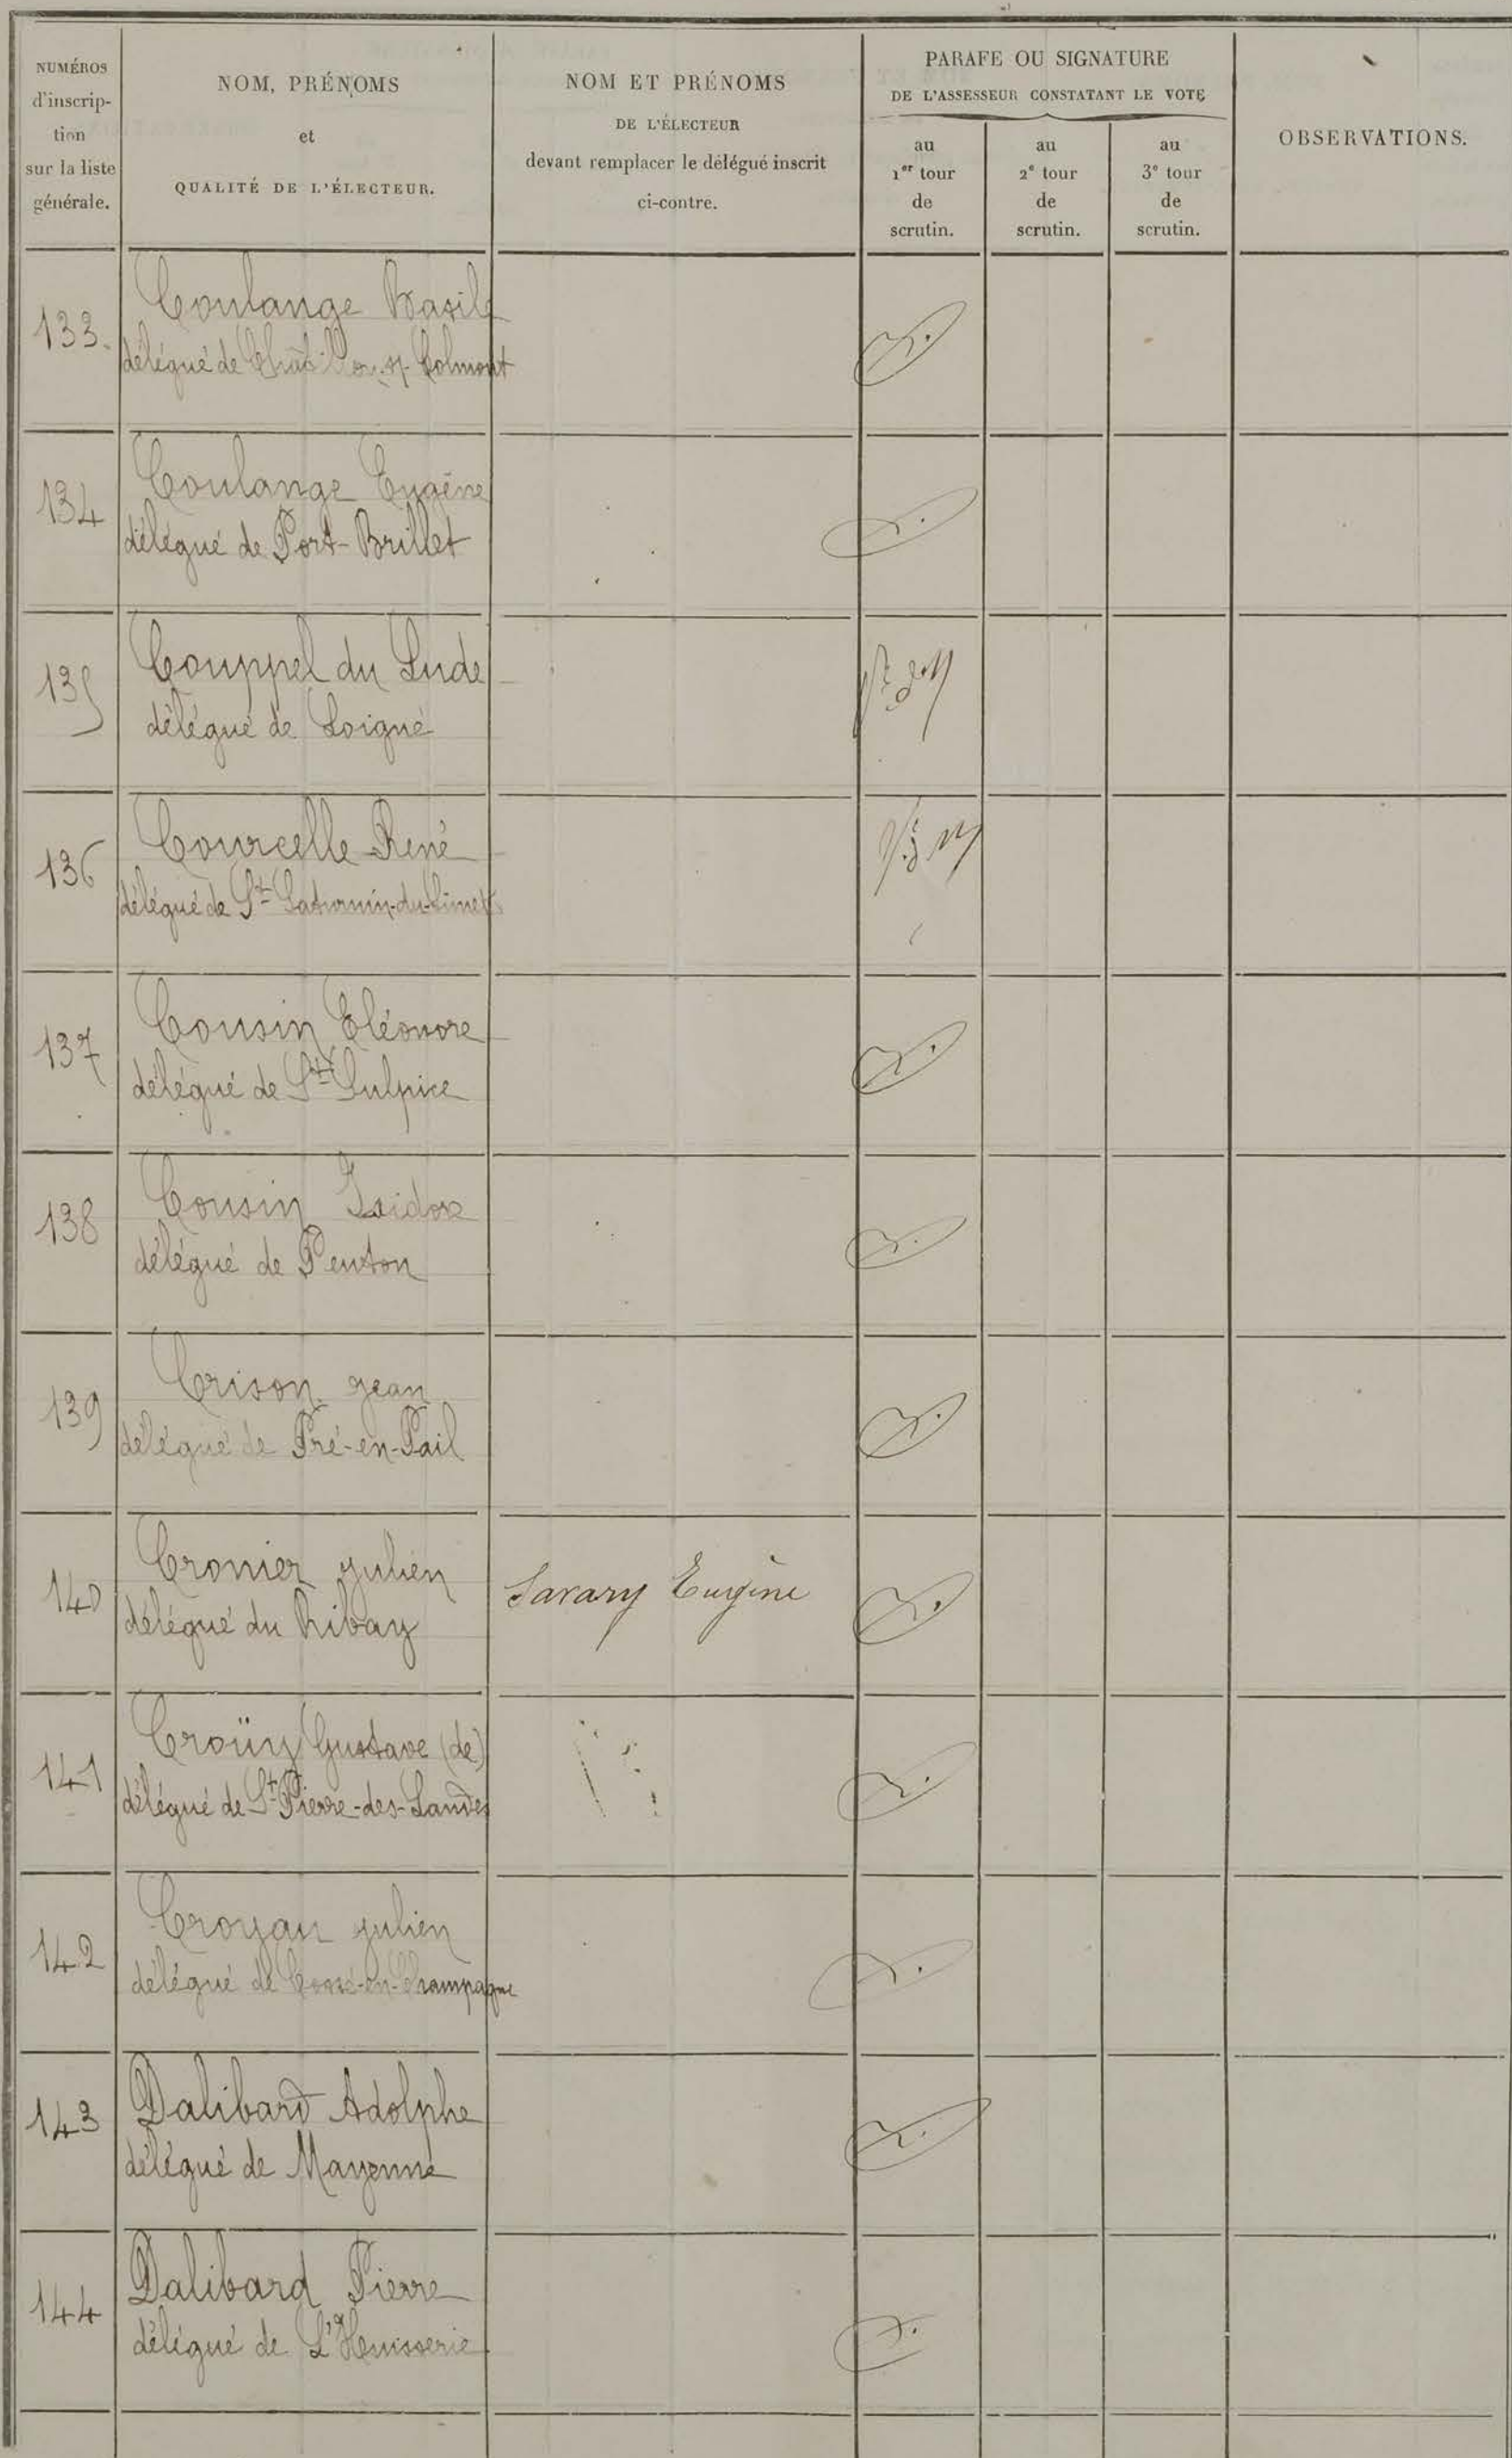 NUMÉROS
d'inscrip-
tion
sur la liste
générale.
NOM, PRÉNOMS
et
QUALITÉ DE L'ÉLECTEUR.
NOM ET PRÉNOMS
DE L'ÉLECTEUR
devant remplacer le délégué inscrit
ci-contre.
PARAFE OU SIGNATURE
DE L'ASSESSEUR CONSTATANT LE VOTE
au
1er tour
de
scrutin.
au
2e tour
de
scrutin.
au
3e tour
de
scrutin.
OBSERVATIONS.
133.
Coulange Basile
délégué de Châtillon s/ Colmont
134
Coulange Eugène
délégué de Port-Brillet
135
Couppel du Lude
délégué de Loigné
136
Courcelle René
délégué de St Saturnin-du-Limet
137
Cousin Eléonore
délégué de St Sulpice
138
Cousin Isidore
délégué de Penton
139
Crison jean
délégué de Pré-en-Pail
140
Cronier julien
délégué du Ribay
Savary Eugène
141
Croüy Gustave (de)
délégué de St Pierre-des-Landes
142
Croyau julien
délégué de Cossé-en-Champagne
143
Dalibard Adolphe
délégué de Mayenne
144
Dalibard Pierre
délégué de L'Huisserie